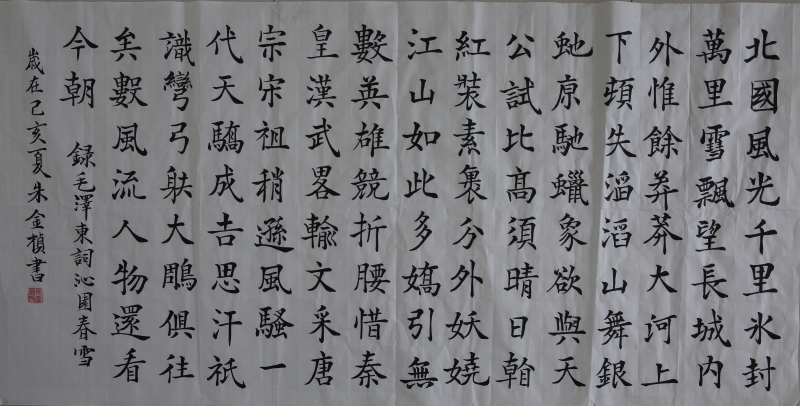 北國風光千里氷封
萬里雪飄望長城内
外惟餘莽莽大河上
下頓失滔滔山舞銀
虵原馳蠟象欲與天
公試比髙須晴日
紅裝素裹分外妖嬈
江山如此多嬌引無
數英雄競折腰惜秦
皇漢武畧輸文采唐
宗宋祖稍遜風騷一
代天驕成吉思汗祇
識彎弓躲大鵰俱往
矣數風流人物還看
今朝
録毛澤東詞沁園春雪
歲在己亥夏朱金楨書